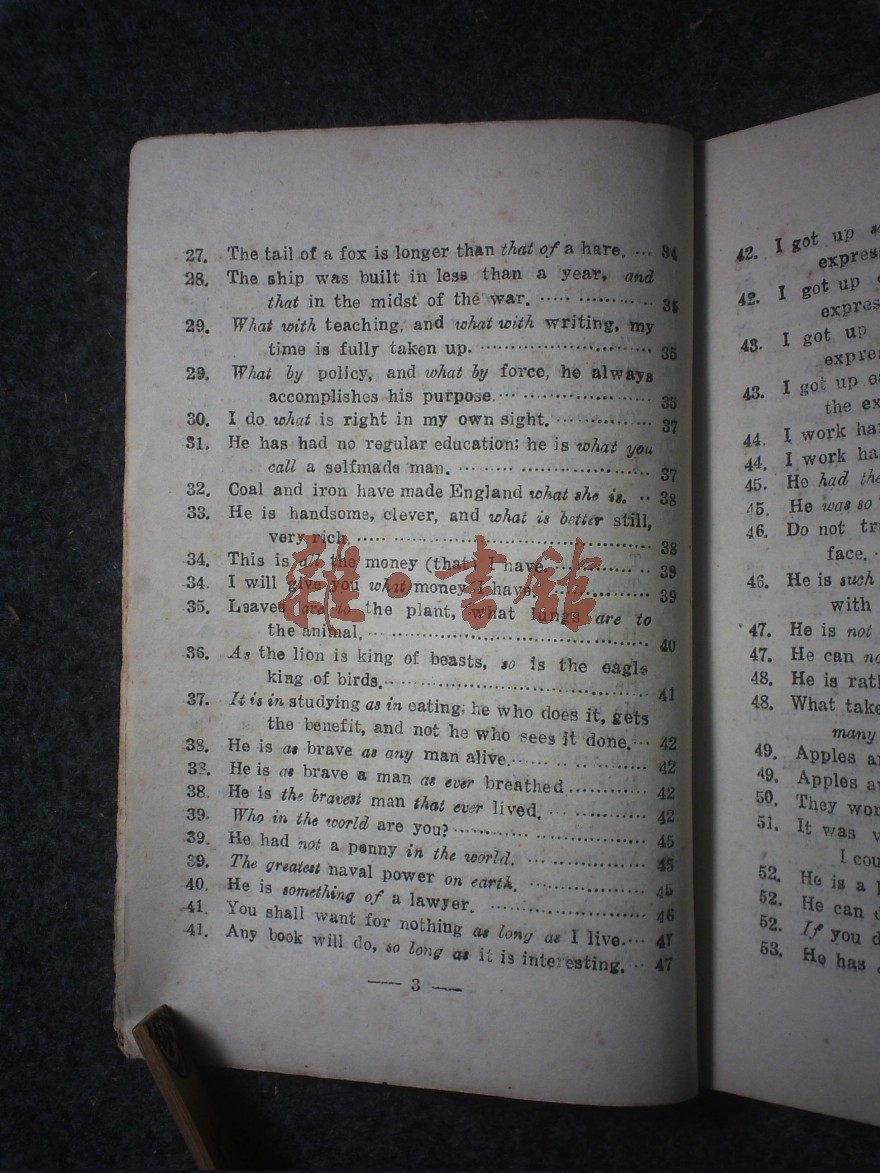 27. The tail of a fox is longer than that of a hare. ... 34
28. The ship was built in less than a year, and
that in the midst of the war. ..... ............ 35
29. What with teaching, and what with writing, my
time is fully taken up. .......................... 35
29. What by policy, and what by force, he always
accomplishes his purpose.... .................. 35
30. I do what is right in my own sight. ............. 37
31. He has had no regular education; he is what you
call a selfmade man. ........ ...................... 37
32. Coal and iron have made England what she is. .. 38
33. He is handsome, clever, and what is better still,
very rich. .......................................... 38
34. This is all the money (that) I have. ............ 39
34. I will give you what money I have. ............ 39
35. Leaves are to the plant, what lungs are to
the animal. ........................................ 40
36. As the lion is king of beasts, so is the eagle
king of birds. ...................................... 41
37. It is in studying as in eating; he who does it, gets
the benefit, and not he who sees it done. ... 42
38. He is as brave as any man alive....... .. .. ........ 42
38. He is as brave a man as ever breathed ............ 42
38. He is the bravest man that ever lived. ... ............ 42
39. Who in the world are you? ............................ 45
39. He had not a penny in the world. ... ............... 45
39. The greatest naval power on earth. ................. 45
40. He is something of a lawyer. ........................ 46
41. You shall want for nothing as long as I live.... 47
41. Any book will do, so long as it is interesting. .. 47
— 3 —
雜·書館
42. I got up
expres
42. I got up
expres
43. I got up
expre
43. I got up
the ex
44. I work ha
44. I work ha
45. He had the
45. He was so
46. Do not tr
face.
46. He is such
with
47. He is not
47. He can
48. He is rat
48. What take
many
49. Apples a
49. Apples a
50. They wor
51. It was
I cou
52. He is a
52. He can
52. If you d
53. He has